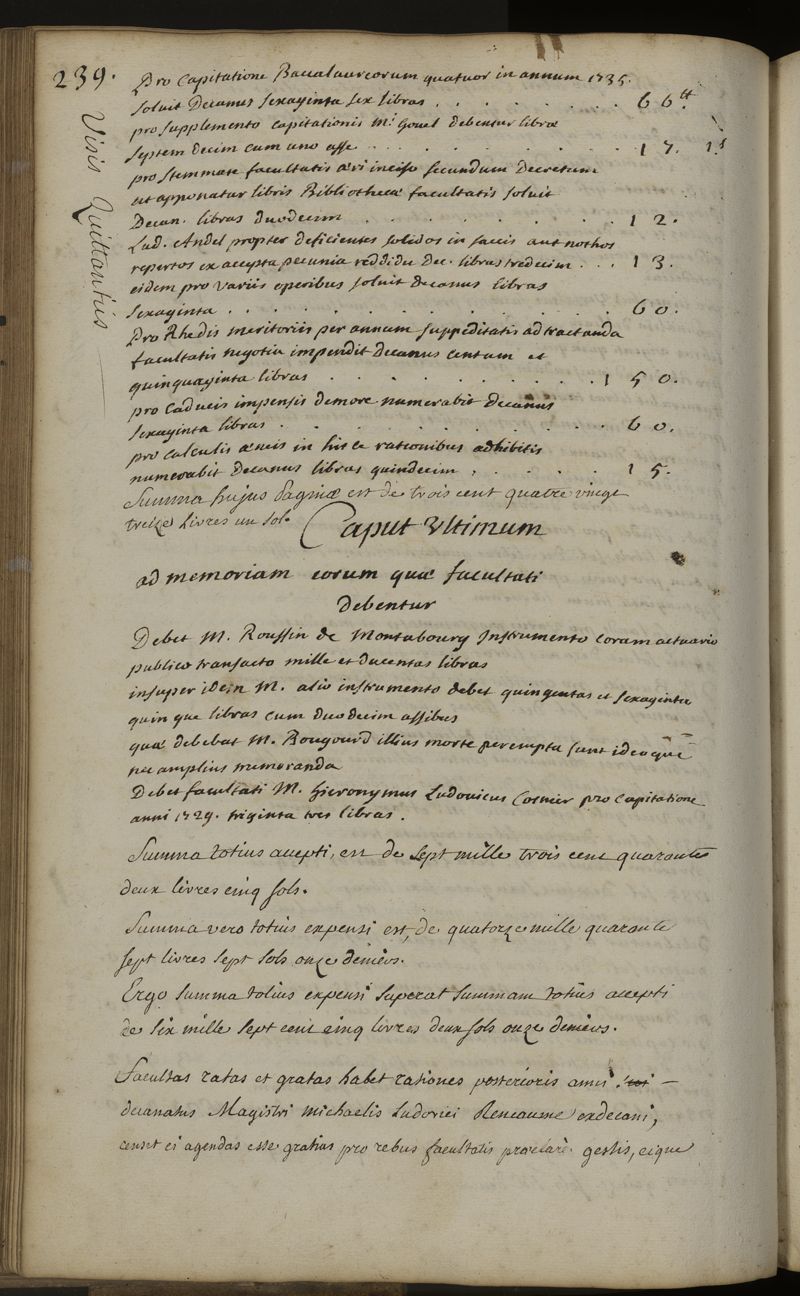 239.
Pro Capitatione Baccalaureorum quatuor in annum 1735.
soluit Decanus sexaginta sex libras . . . . . . . . 66.tt
pro supplemento capitationis Mi. Gouel debentur libræ
septem decim cum uno asse . . . . . . . . . . 17. 1.s
pro stemmate facultatis æri inciso secundum Decretum
ut apponatur libris Bibliothecæ facultatis soluit
Decan. libras duodecim . . . . . . . . . 12.
Lud. Andel propter deficientes solidos in saccis aut nothos
repertos ex accepta pecunia reddidit Dec. libras tredecim . . . 13.
eidem pro variis operibus soluit decanus libras
sexaginta . . . . . . . . . . . . . . 60.
Pro Rhedis meritoriis per annum suppeditatis ad tractanda
facultatis negotia impendit decanus centum et
quinquaginta libras . . . . . . . . . . 150.
pro Caducis impensis de more numerabit decanus
sexaginta libras . . . . . . . . . . . . 60.
pro calculis æneis in hisce rationibus adhibitis
numerabit Decanus libras quindecim . . . . . . 15.
Summa hujus Paginæ est de trois cent quatre vingt
treize Livres un sol.
Visis Quittantiis
Caput Ultimum
ad memoriam eorum quæ facultati
Debentur
Debet M. Roussin de Montabourg Instrumento Coram actuario
publico transacto mille et ducentas libras
insuper idem M. alio instrumento debet quingentas et sexaginta
quinque libras cum duodecim assibus
quæ debebat M. Rougourd illius morte perempta sunt ideoque
nec amplius numeranda
Debet facultati M. Hieronymus Ludovicus Cosnier pro Capitatione
anni 1729. triginta tres libras.
Summa totius accepti, est de sept mille trois cent quarante
deux livres cinq sols.
Summa vero totius expensi est, de quatorze mille quarante
sept livres sept sols onze deniers.
Ergo summa totius expensi superat summam totius accepti
de six mille sept cent cinq livres deux sols onze deniers.
Facultas ratas et gratas habet rationes posterioris anni
decanatus Magistri Michaelis Ludovici Reneaume exdecani,
censet ei agendas esse gratias pro rebus facultatis præclare gestis, eique